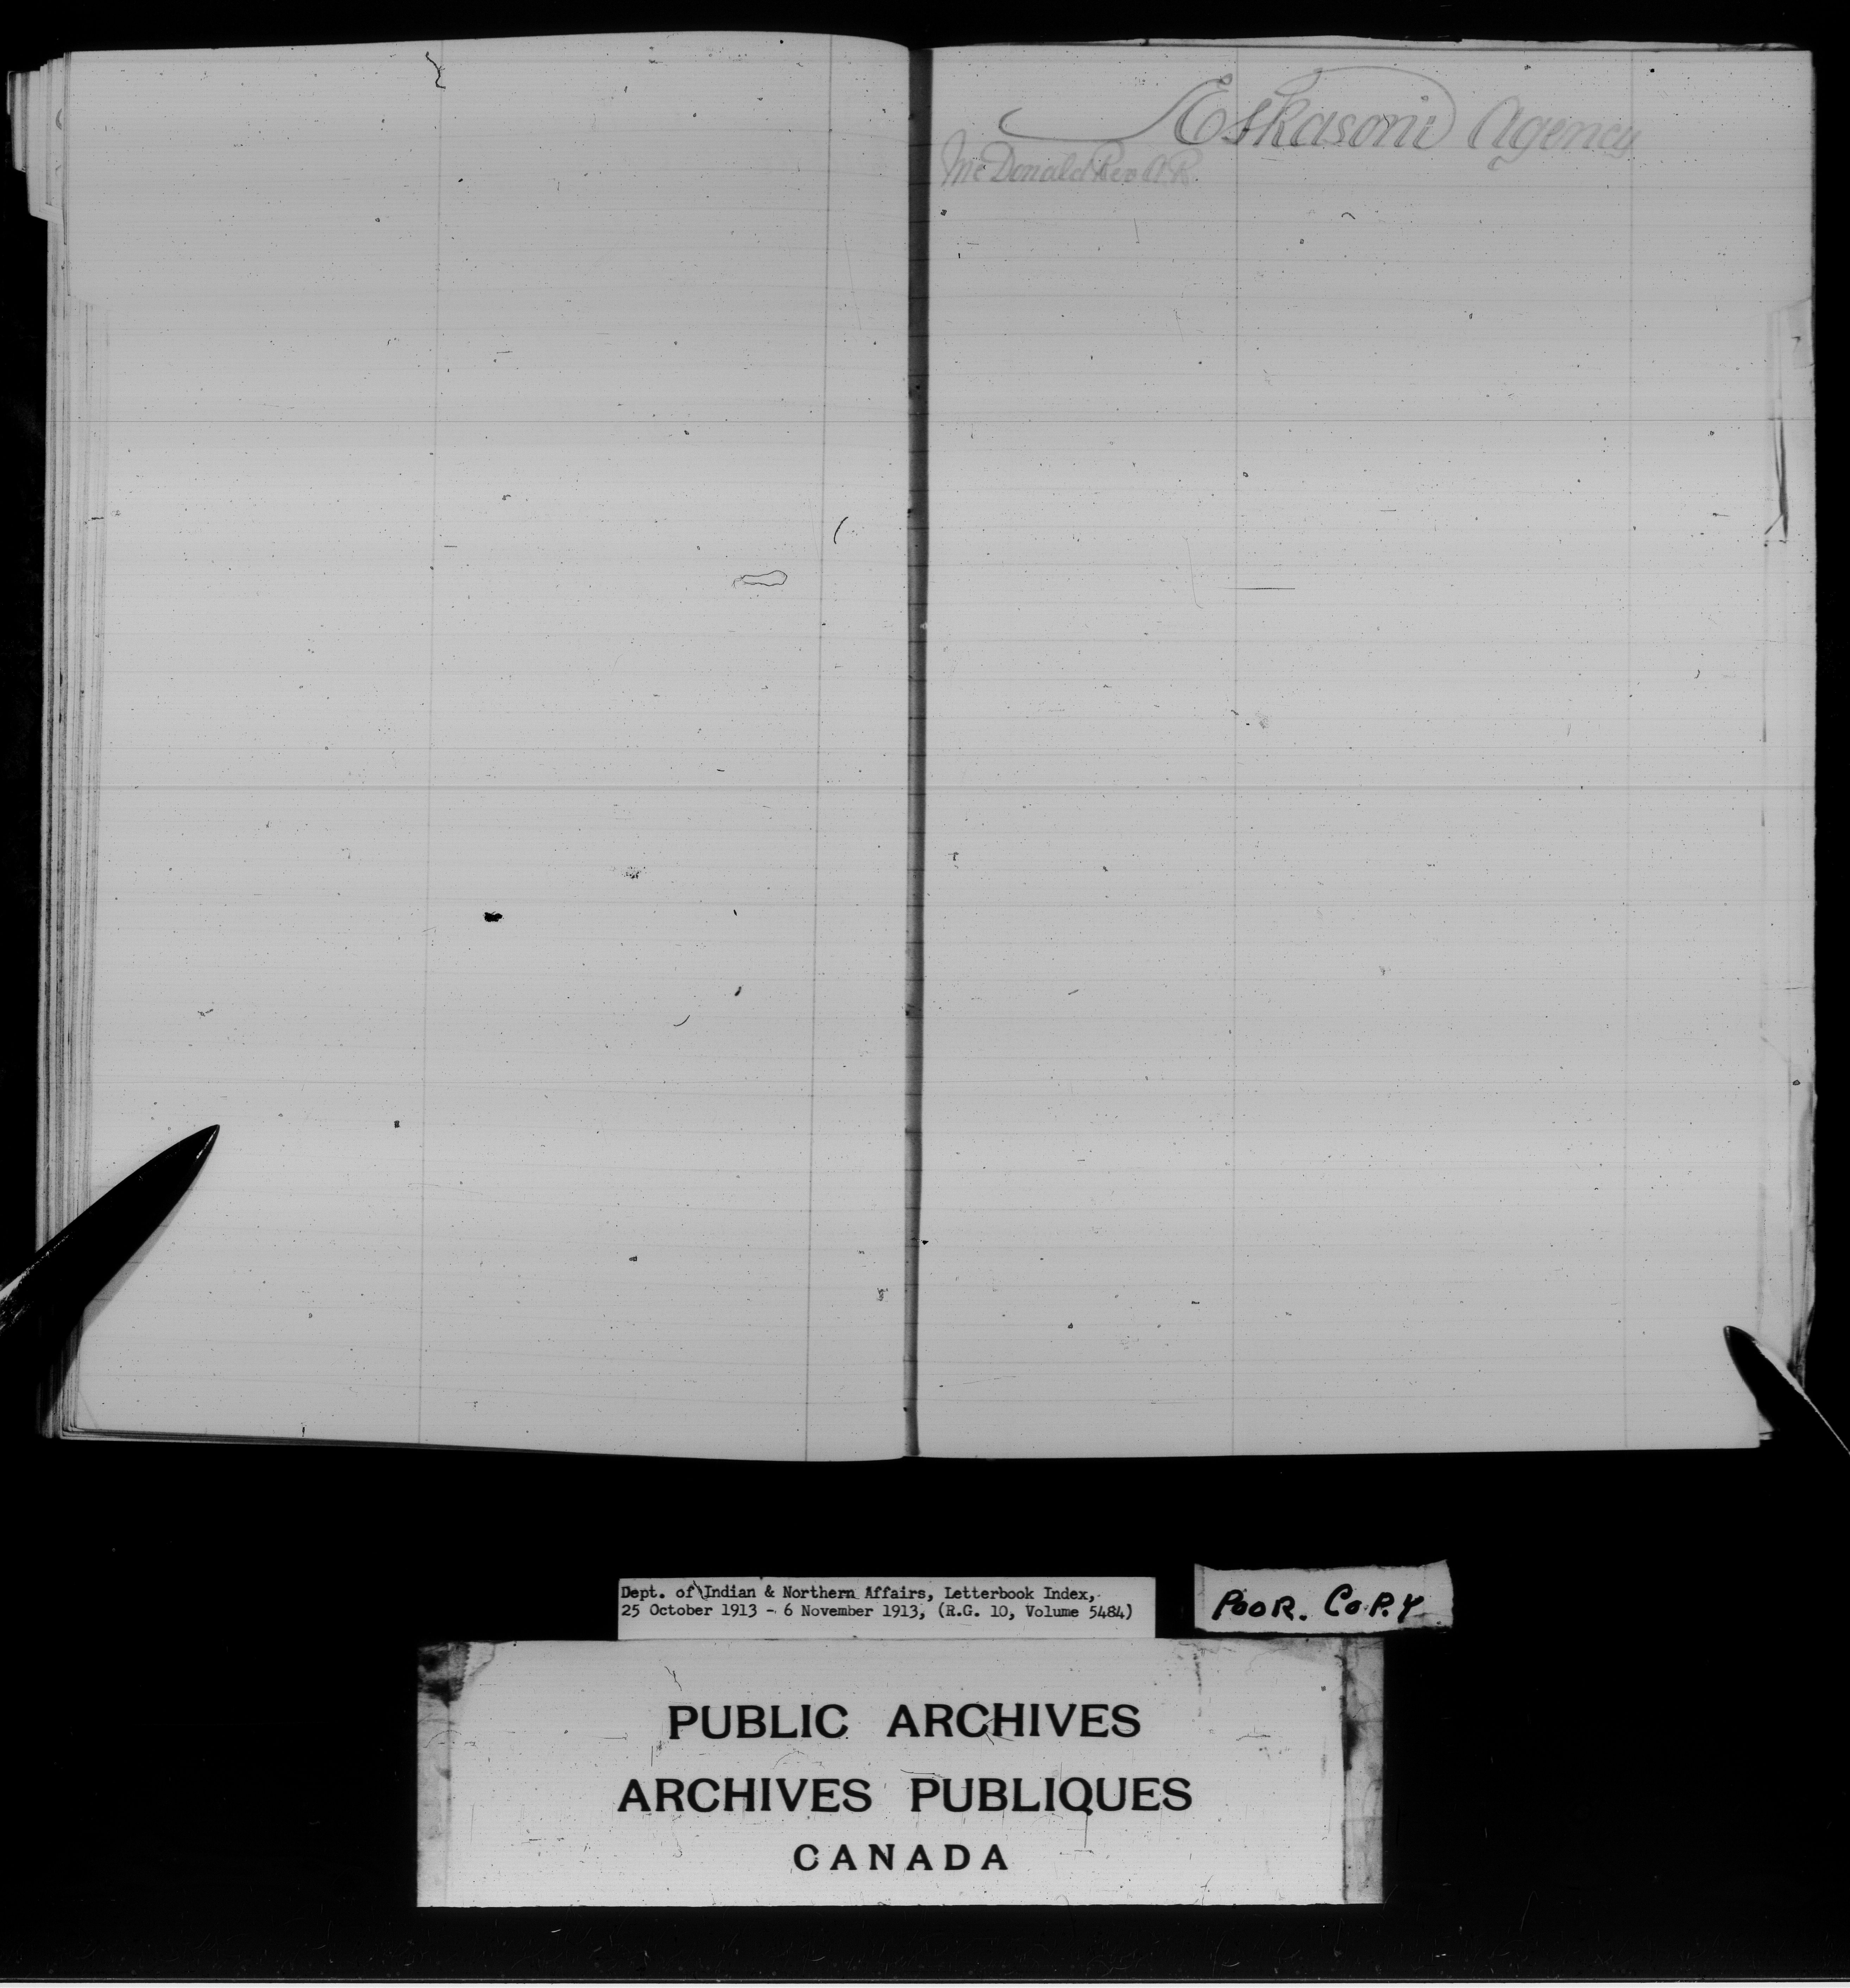 Eskasoni Agency
McDonald Rev A R.
Dept. of Indian & Northern Affairs, Letterbook Index,
25 October 1913 - 6 November 1913, (R.G. 10, Volume 5484)
POOR. COPY
PUBLIC ARCHIVES
ARCHIVES PUBLIQUES
CANADA